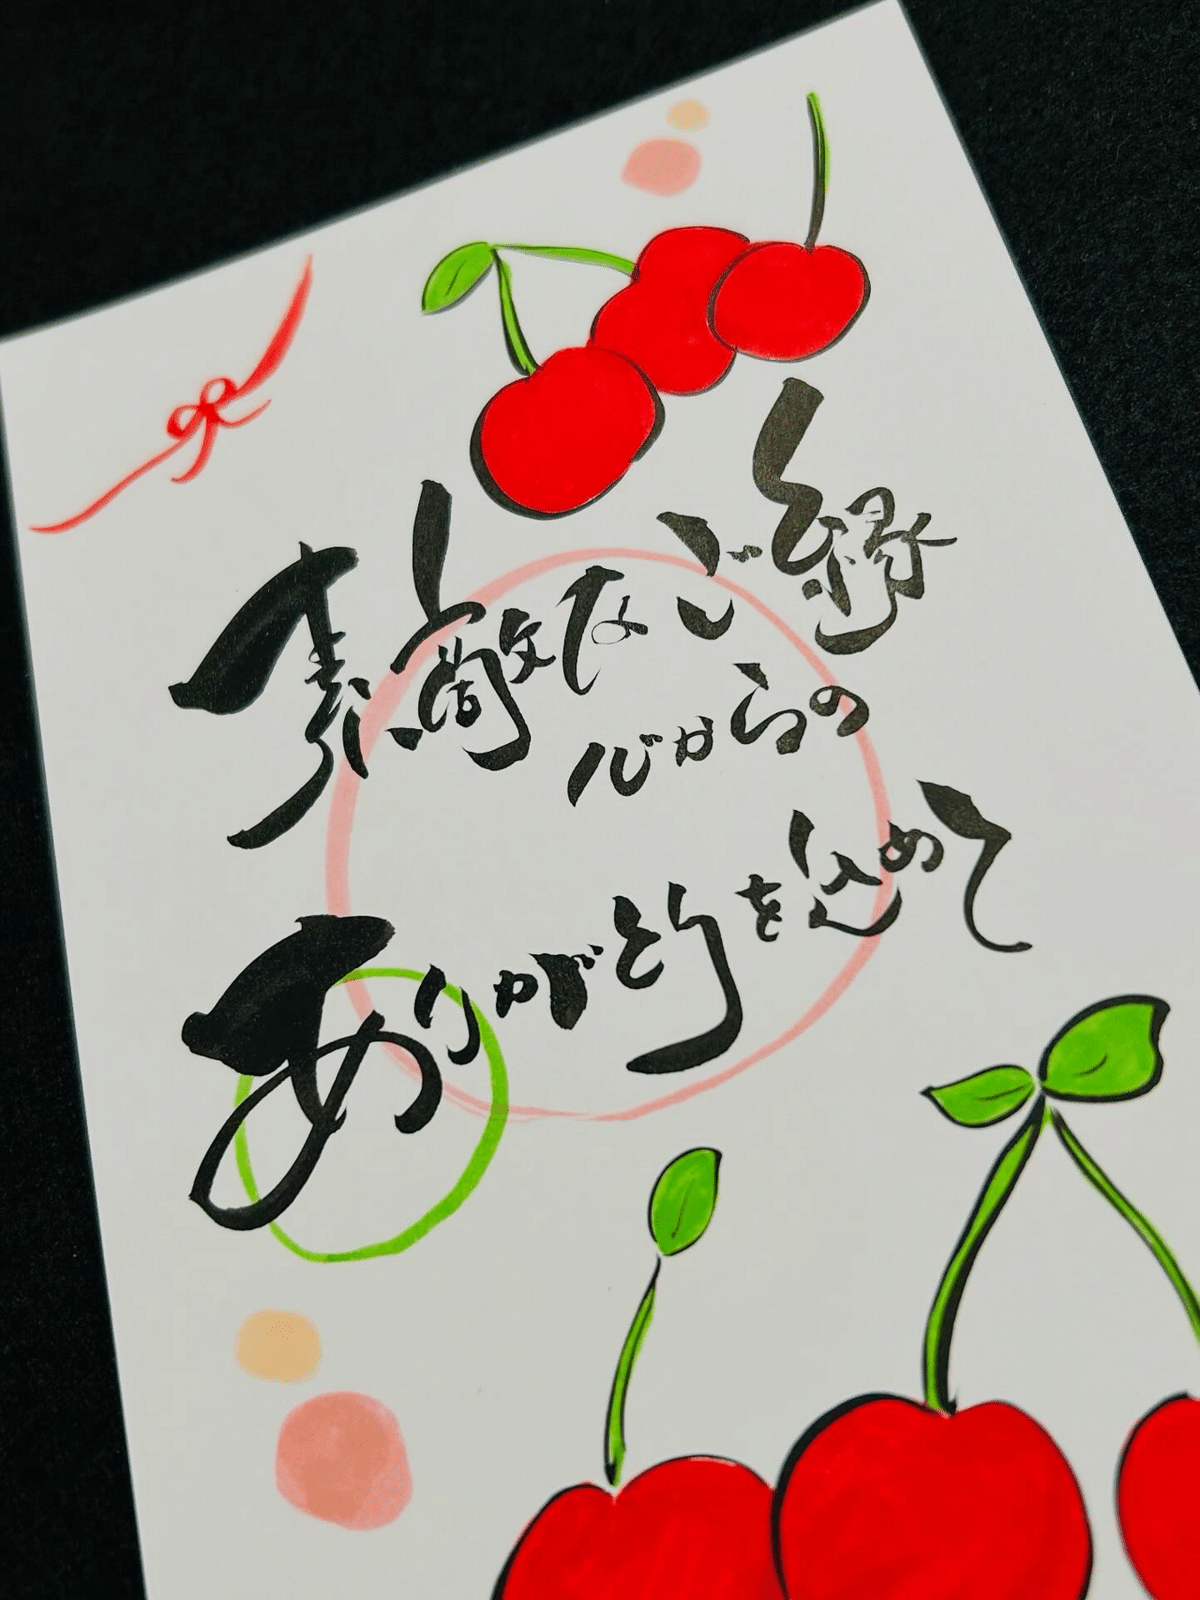 素敵なご縁
心からの
ありがとうを込めて